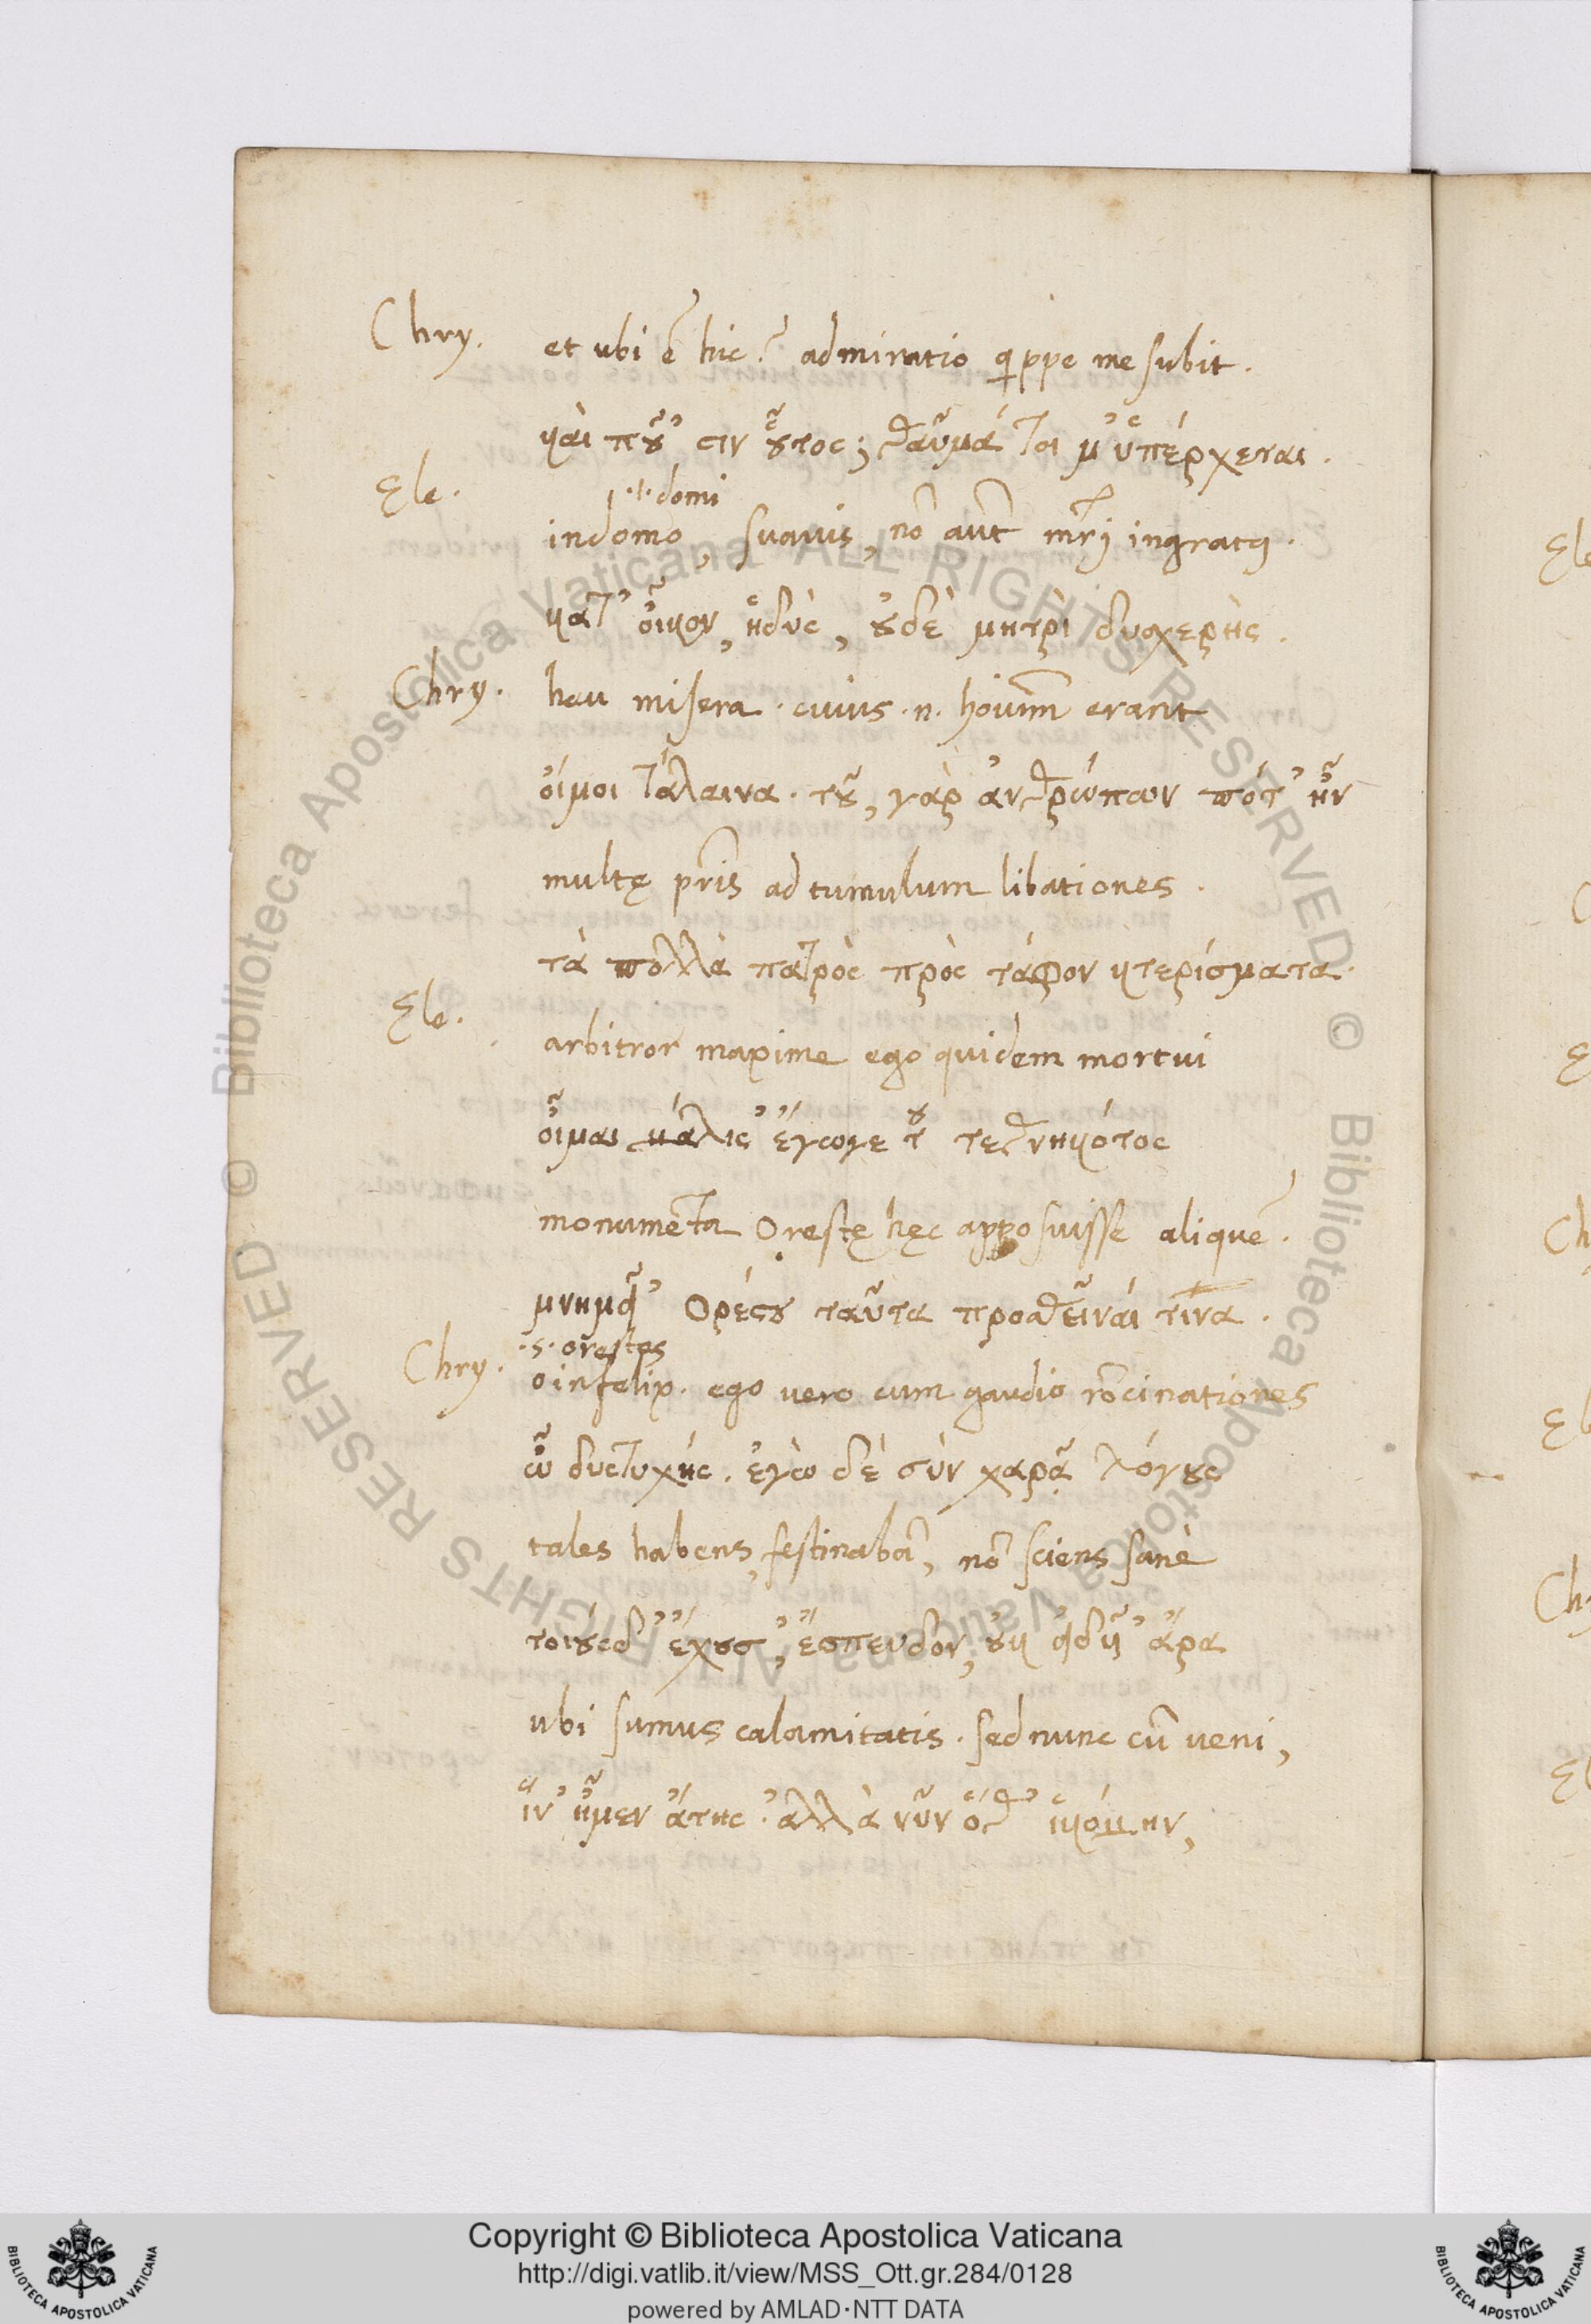 Chry. et ubi ẽ hic? admiratio qppe me subit.
καὶ ποῦ 'στιν οὗτος; θαῦμά τοι μ' ὑπέρχεται.
.i. domi
Ele. indomo, suavis, nõ aut mrj ingratq.
κατ' οἶκον, ἡδὺς, οὐδὲ μητρὶ δυσχερὴς.
Chry. heu misera. cuius .n. hoium erant
οἴμοι τάλαινα. τοῦ, γὰρ ἀνθρώπων πότ' ἦν
multę pris ad tumulum libationes.
τὰ πολλὰ πατρὸς πρὸς τάφον κτερίσματα.
Ele. arbitror maxime ego quidem mortui
οἶμαι μάλιστ' ἔγωγε τοῦ τεθνηκότος
monumẽta Orestę hęc apposuisse aliquẽ.
μνημεῖ' Ορέστου ταῦτα προσθεῖναί τινα.
.s. orestes
Chry. o infelix. ego vero cum gaudio rõcinationes
ὦ δυστυχής. ἐγὼ δὲ σὺν χαρᾷ λόγους
tales habens, festinabã, nõ sciens sanè
τοιούσδ' ἔχουσ', ἔσπευδον, οὐκ εἰδυῖ' ἄρα
ubi sumus calamitatis. sed nunc cũ ueni,
ἵν' ἦμεν ἄτης. ἀλλὰ νῦν ὅθ' ἱκόμην,
Ele
Ch
El
Copyright © Biblioteca Apostolica Vaticana
http://digi.vatlib.it/view/MSS_Ott.gr.284/0128
powered by AMLAD·NTT DATA
BIBLIOTECA APOSTOLICA VATICANA
BIBLIOTECA APOSTOLICA VATICANA
© Biblioteca Apostolica Vaticana ALL RIGHTS RESERVED
© Biblioteca Apostolica Vaticana ALL RIGHTS RESERVED